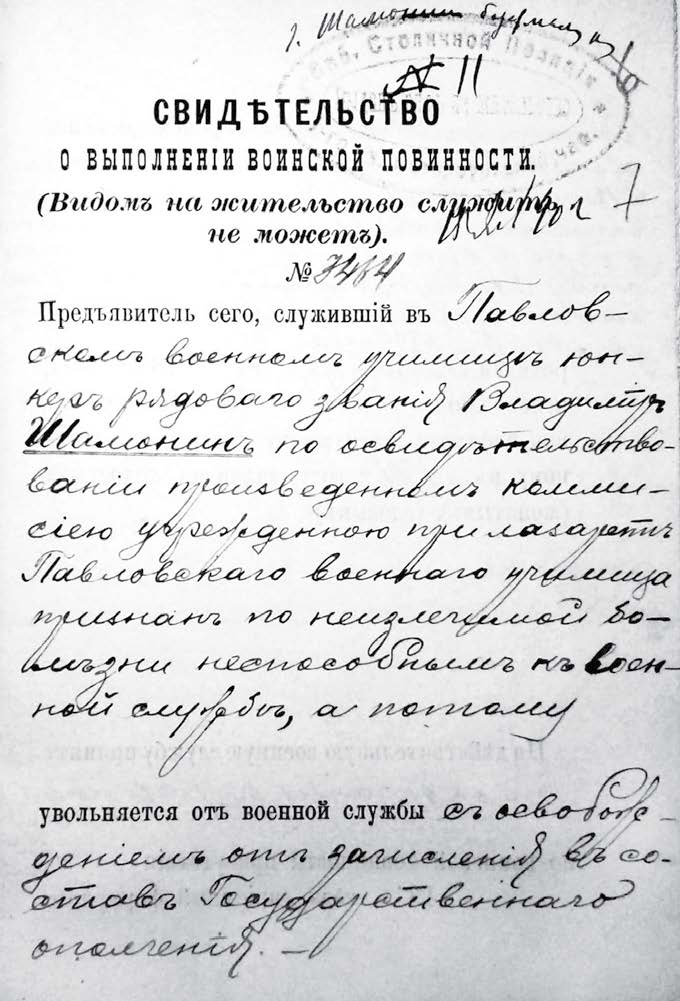 г. Шамонин
№ 11
СВИДѢТЕЛЬСТВО
О ВЫПОЛНЕНІИ ВОИНСКОЙ ПОВИННОСТИ.
(Видомъ на жительство служить
не можетъ).
7
№ 3484
Предъявитель сего, служившій въ Павлов-
скомъ военномъ училищѣ юн-
керъ рядоваго званія Владиміръ
Шамонинъ по освидѣтельство-
ваніи произведенномъ комми-
сіею учрежденною при лазаретѣ
Павловскаго военнаго училища
признанъ по неизлечимой бо-
лѣзни неспособнымъ къ воен-
ной службѣ, а потому
увольняется отъ военной службы съ освобож-
деніемъ отъ зачисленія въ со-
ставъ Государственнаго
ополченія. —